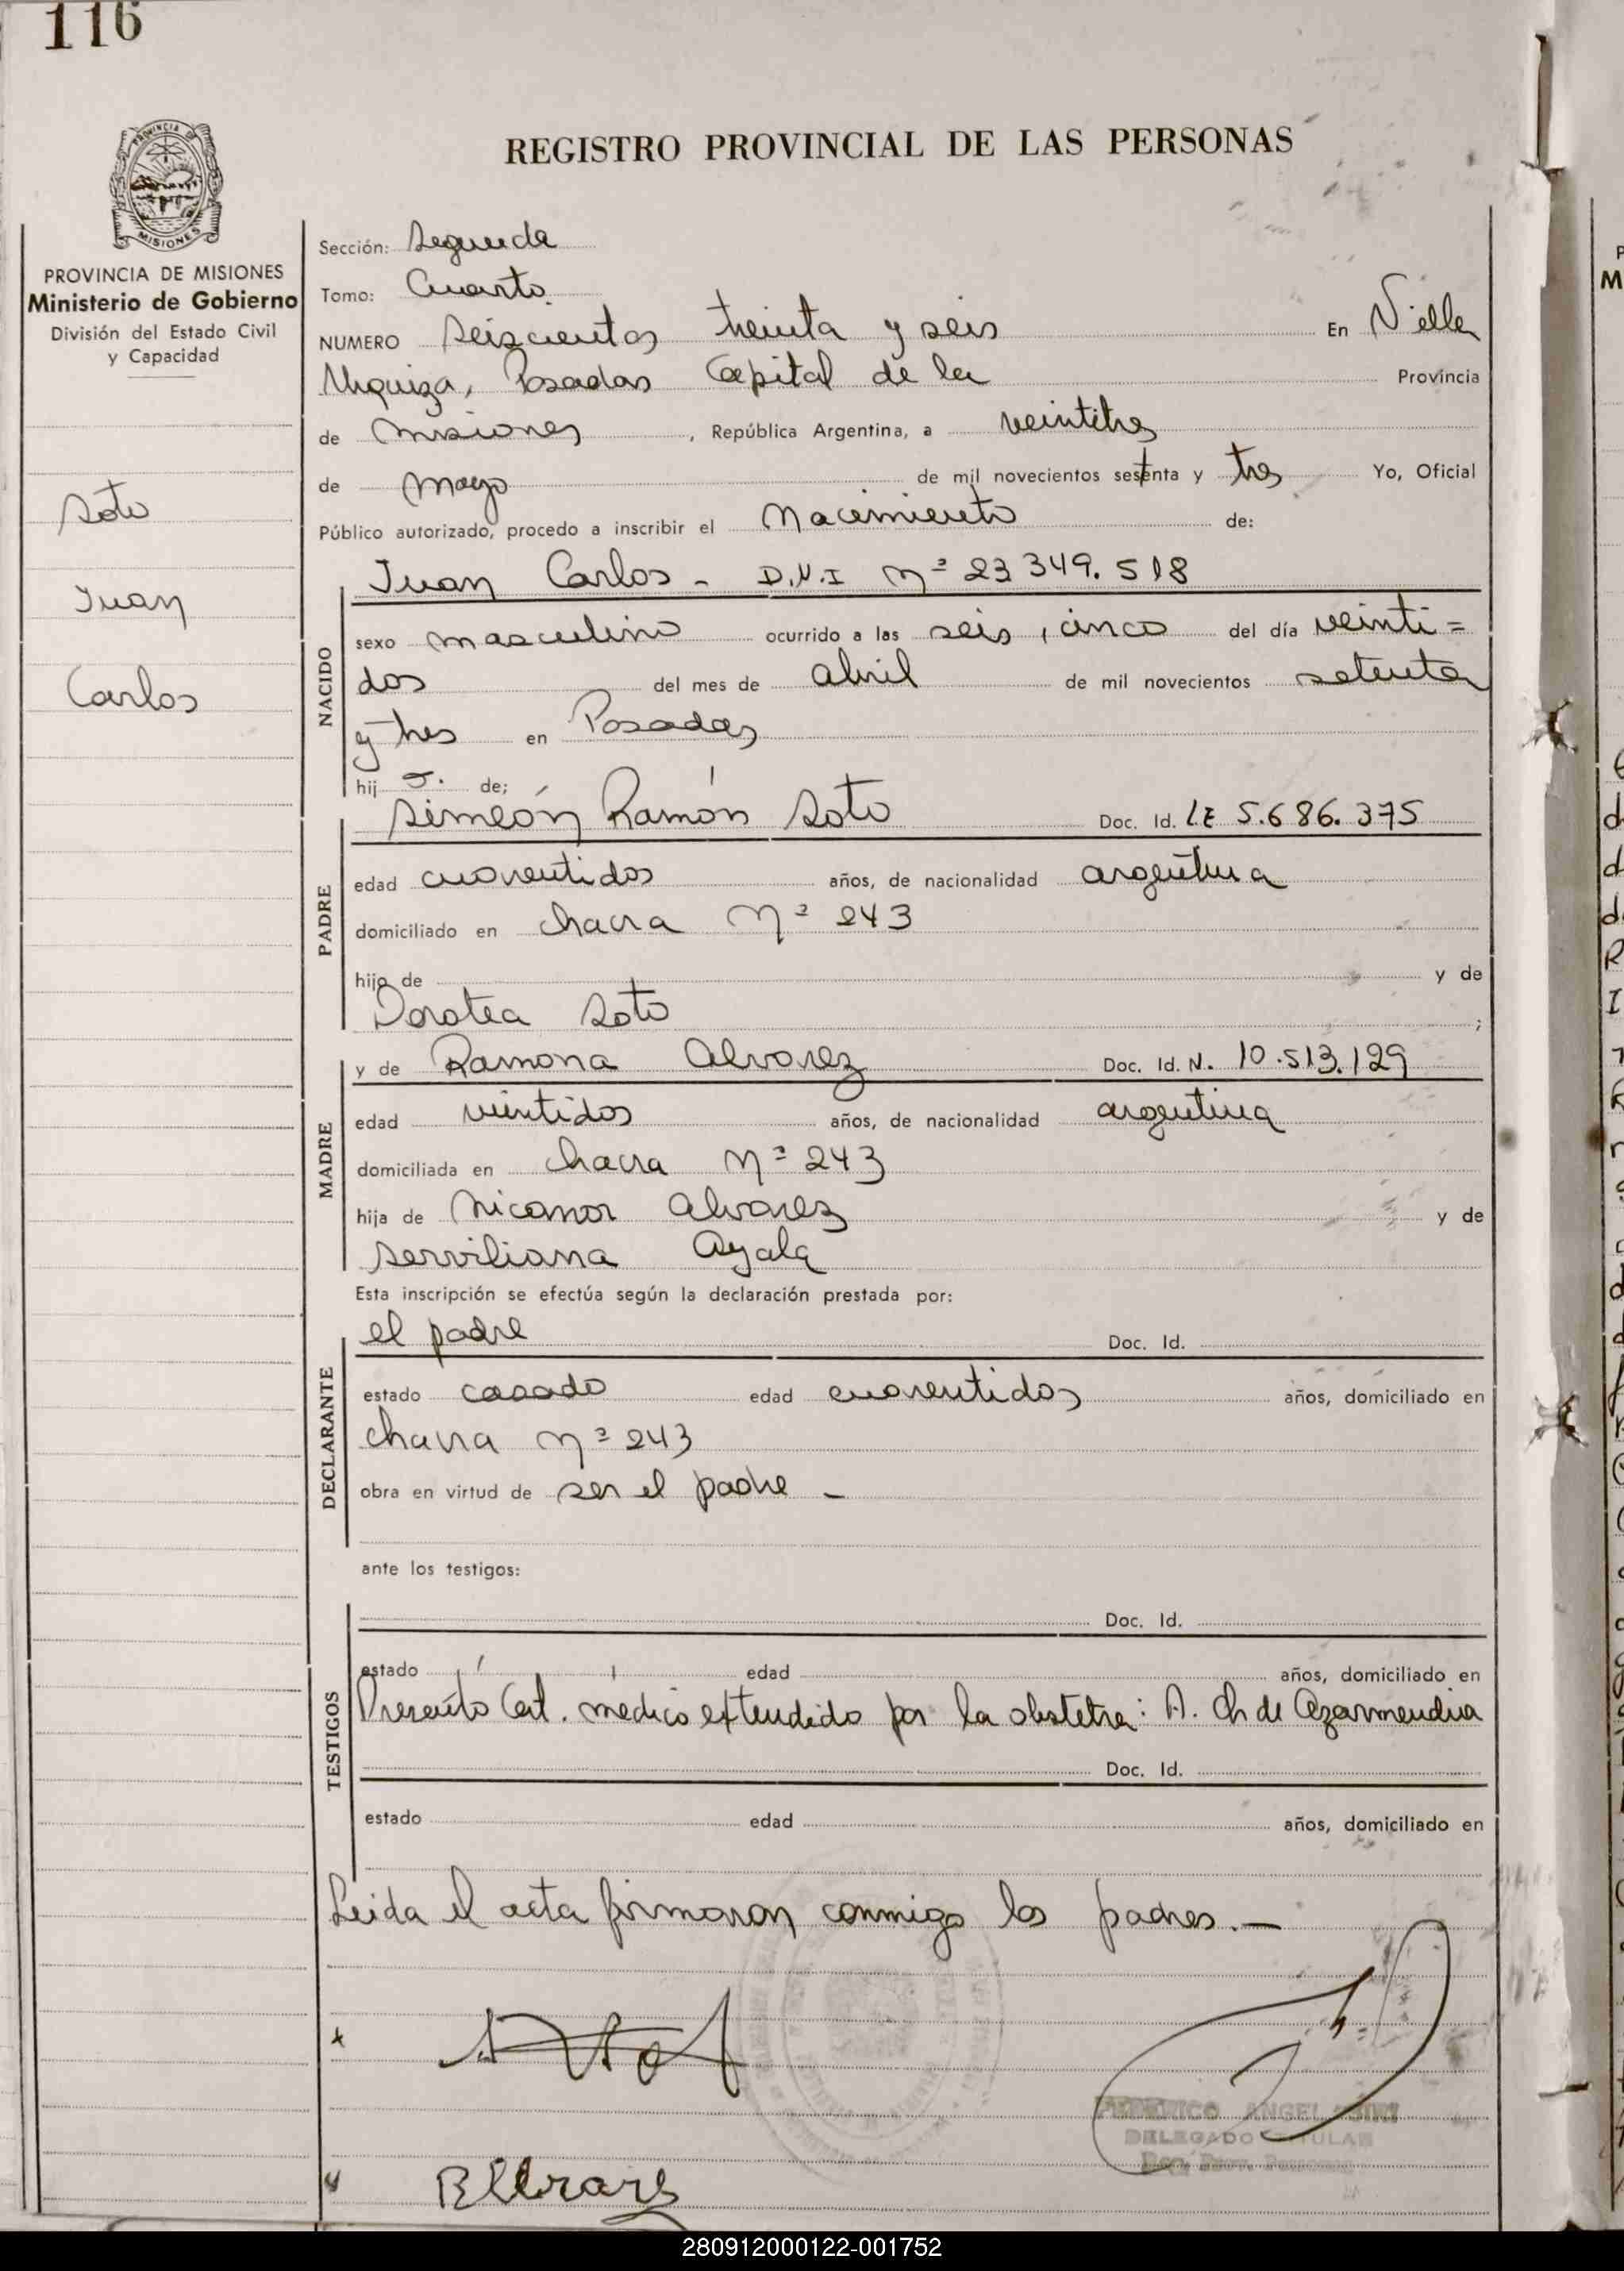 116
REGISTRO PROVINCIAL DE LAS PERSONAS
PROVINCIA DE MISIONES
PROVINCIA DE MISIONES
Ministerio de Gobierno
División del Estado Civil
y Capacidad
Soto
Juan
Carlos
Sección: Segunda
Tomo: Cuarto
NUMERO Seiscientos treinta y seis En Villa
Urquiza, Posadas Capital de la Provincia
de Misiones, República Argentina, a veintitres
de Mayo de mil novecientos setenta y tres Yo, Oficial
Público autorizado, procedo a inscribir el Nacimiento de:
Juan Carlos - D.N.I Nº 23 349.518
NACIDO
sexo masculino ocurrido a las seis, cinco del día veinti=
dos del mes de abril de mil novecientos setenta
y tres en Posadas
hijo. de;
PADRE
Simeón Ramón Soto Doc. Id. LE 5.686.375
edad cuarentidos años, de nacionalidad argentina
domiciliado en chacra Nº 243
hijo de y de
Dorotea Soto ;
MADRE
y de Ramona Alvarez Doc. Id. N. 10.513.129
edad veintidos años, de nacionalidad argentina
domiciliada en chacra Nº 243
hija de Nicanor Alvarez y de
Serviliana Ayala
Esta inscripción se efectúa según la declaración prestada por:
DECLARANTE
el padre Doc. Id.
estado casado edad cuarentidos años, domiciliado en
chacra Nº 243
obra en virtud de ser el padre -
ante los testigos:
TESTIGOS
Doc. Id.
estado edad años, domiciliado en
Presento Cert. medico extendido por la obstetra: A. Ch de Azarmendia
Doc. Id.
estado edad años, domiciliado en
Leida el acta firmaron conmigo los padres.-
FEDERICO ANGEL
DELEGADO TITULAR
280912000122-001752